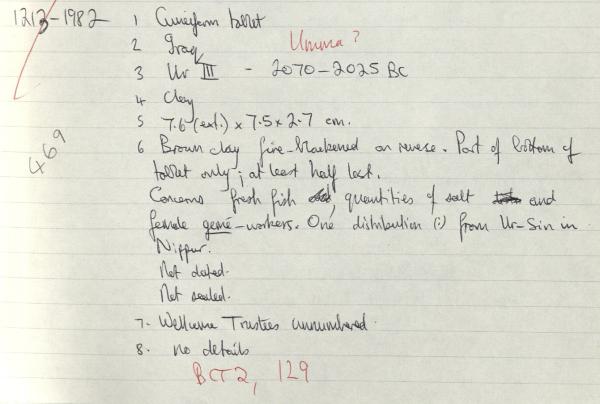 1213-1982 1 Cuneiform tablet
2 Iraq Umma?
3 Ur III - 2070-2025 BC
4 Clay
5 7.6 (ext.) x 7.5 x 2.7 cm.
469
6 Brown clay fire-blackened on reverse. Part of bottom of
tablet only; at least half lost.
Concerns fresh fish, quantities of salt and
female geme-workers. One distribution (:) from Ur-Sin in
Nippur.
Not dated.
Not sealed.
7. Wellcome Trustees unnumbered.
8. no details
BCT2, 129